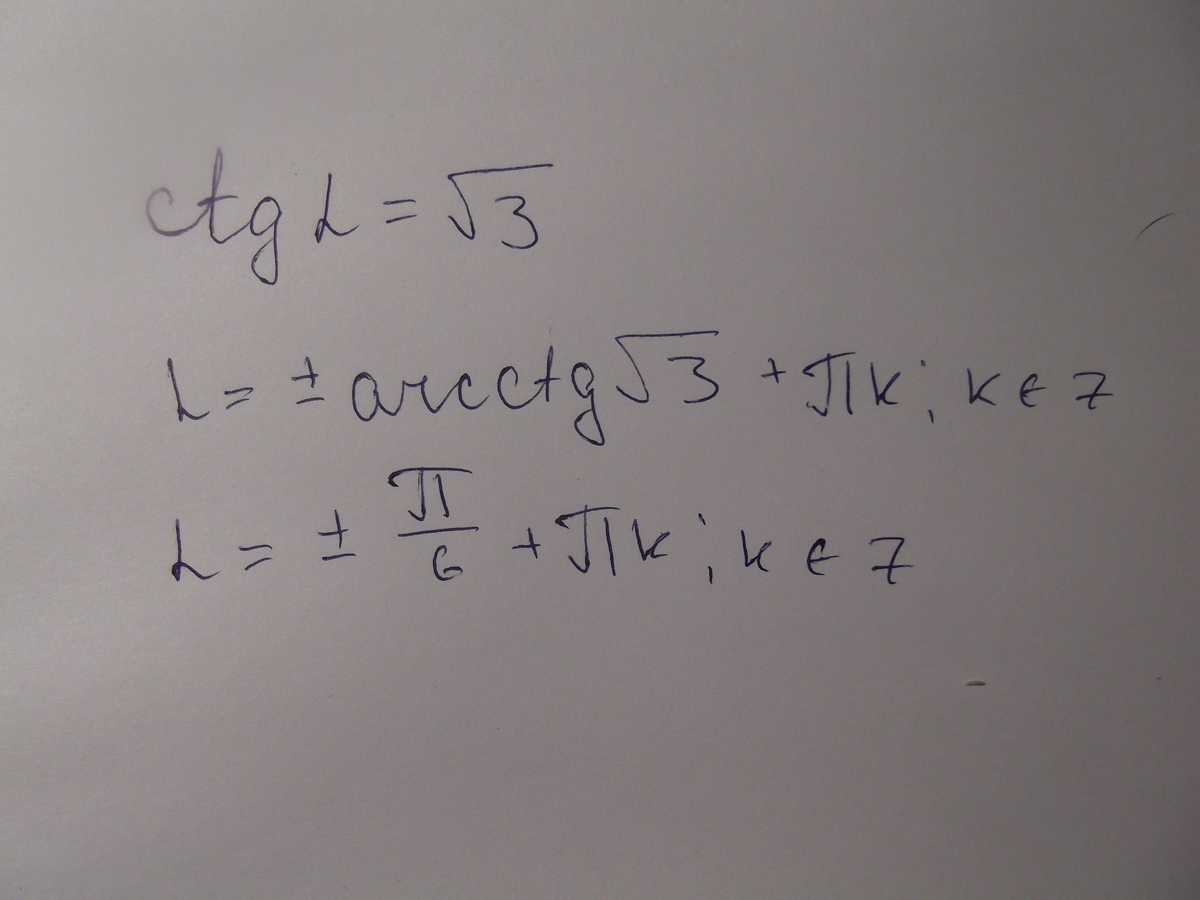 ctg L = √3
L = ± arcctg √3 + πk; k ∈ Z
L = ± π/6 + πk; k ∈ Z